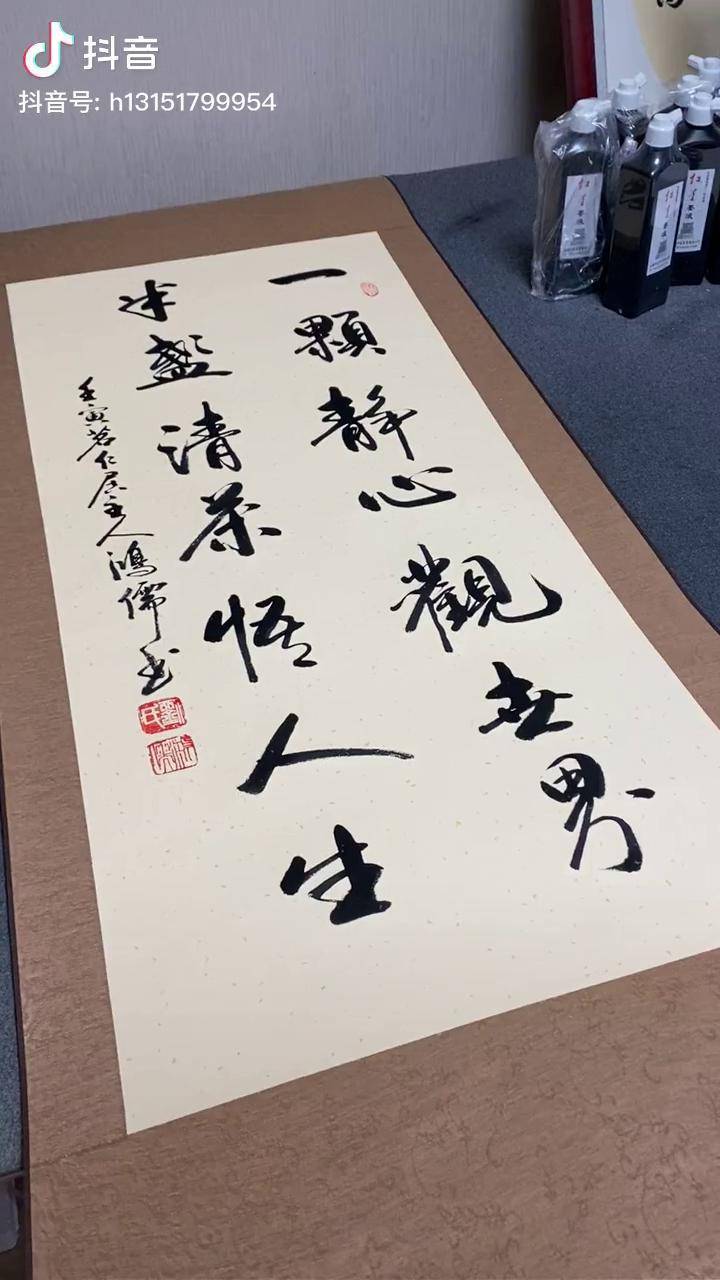 抖音
抖音号: h13151799954
一顆靜心觀世界
半盞清茶悟人生
壬寅茗仁居主人鴻儒书
劉氏